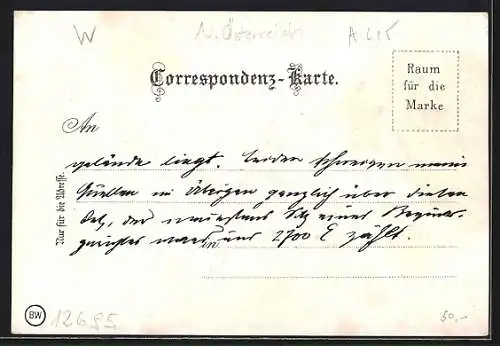 W
N. Österreich
A L15
Correspondenz-Karte.
Raum
für die
Marke
An
gelände liegt. Leider schweigen meine
Quellen im Übrigen gänzlich über diesen
Ort, der Sitz eines Bezirks-
gerichtes in und 2700 E zählt.
Nur für die Adresse.
BW
12695
50,-